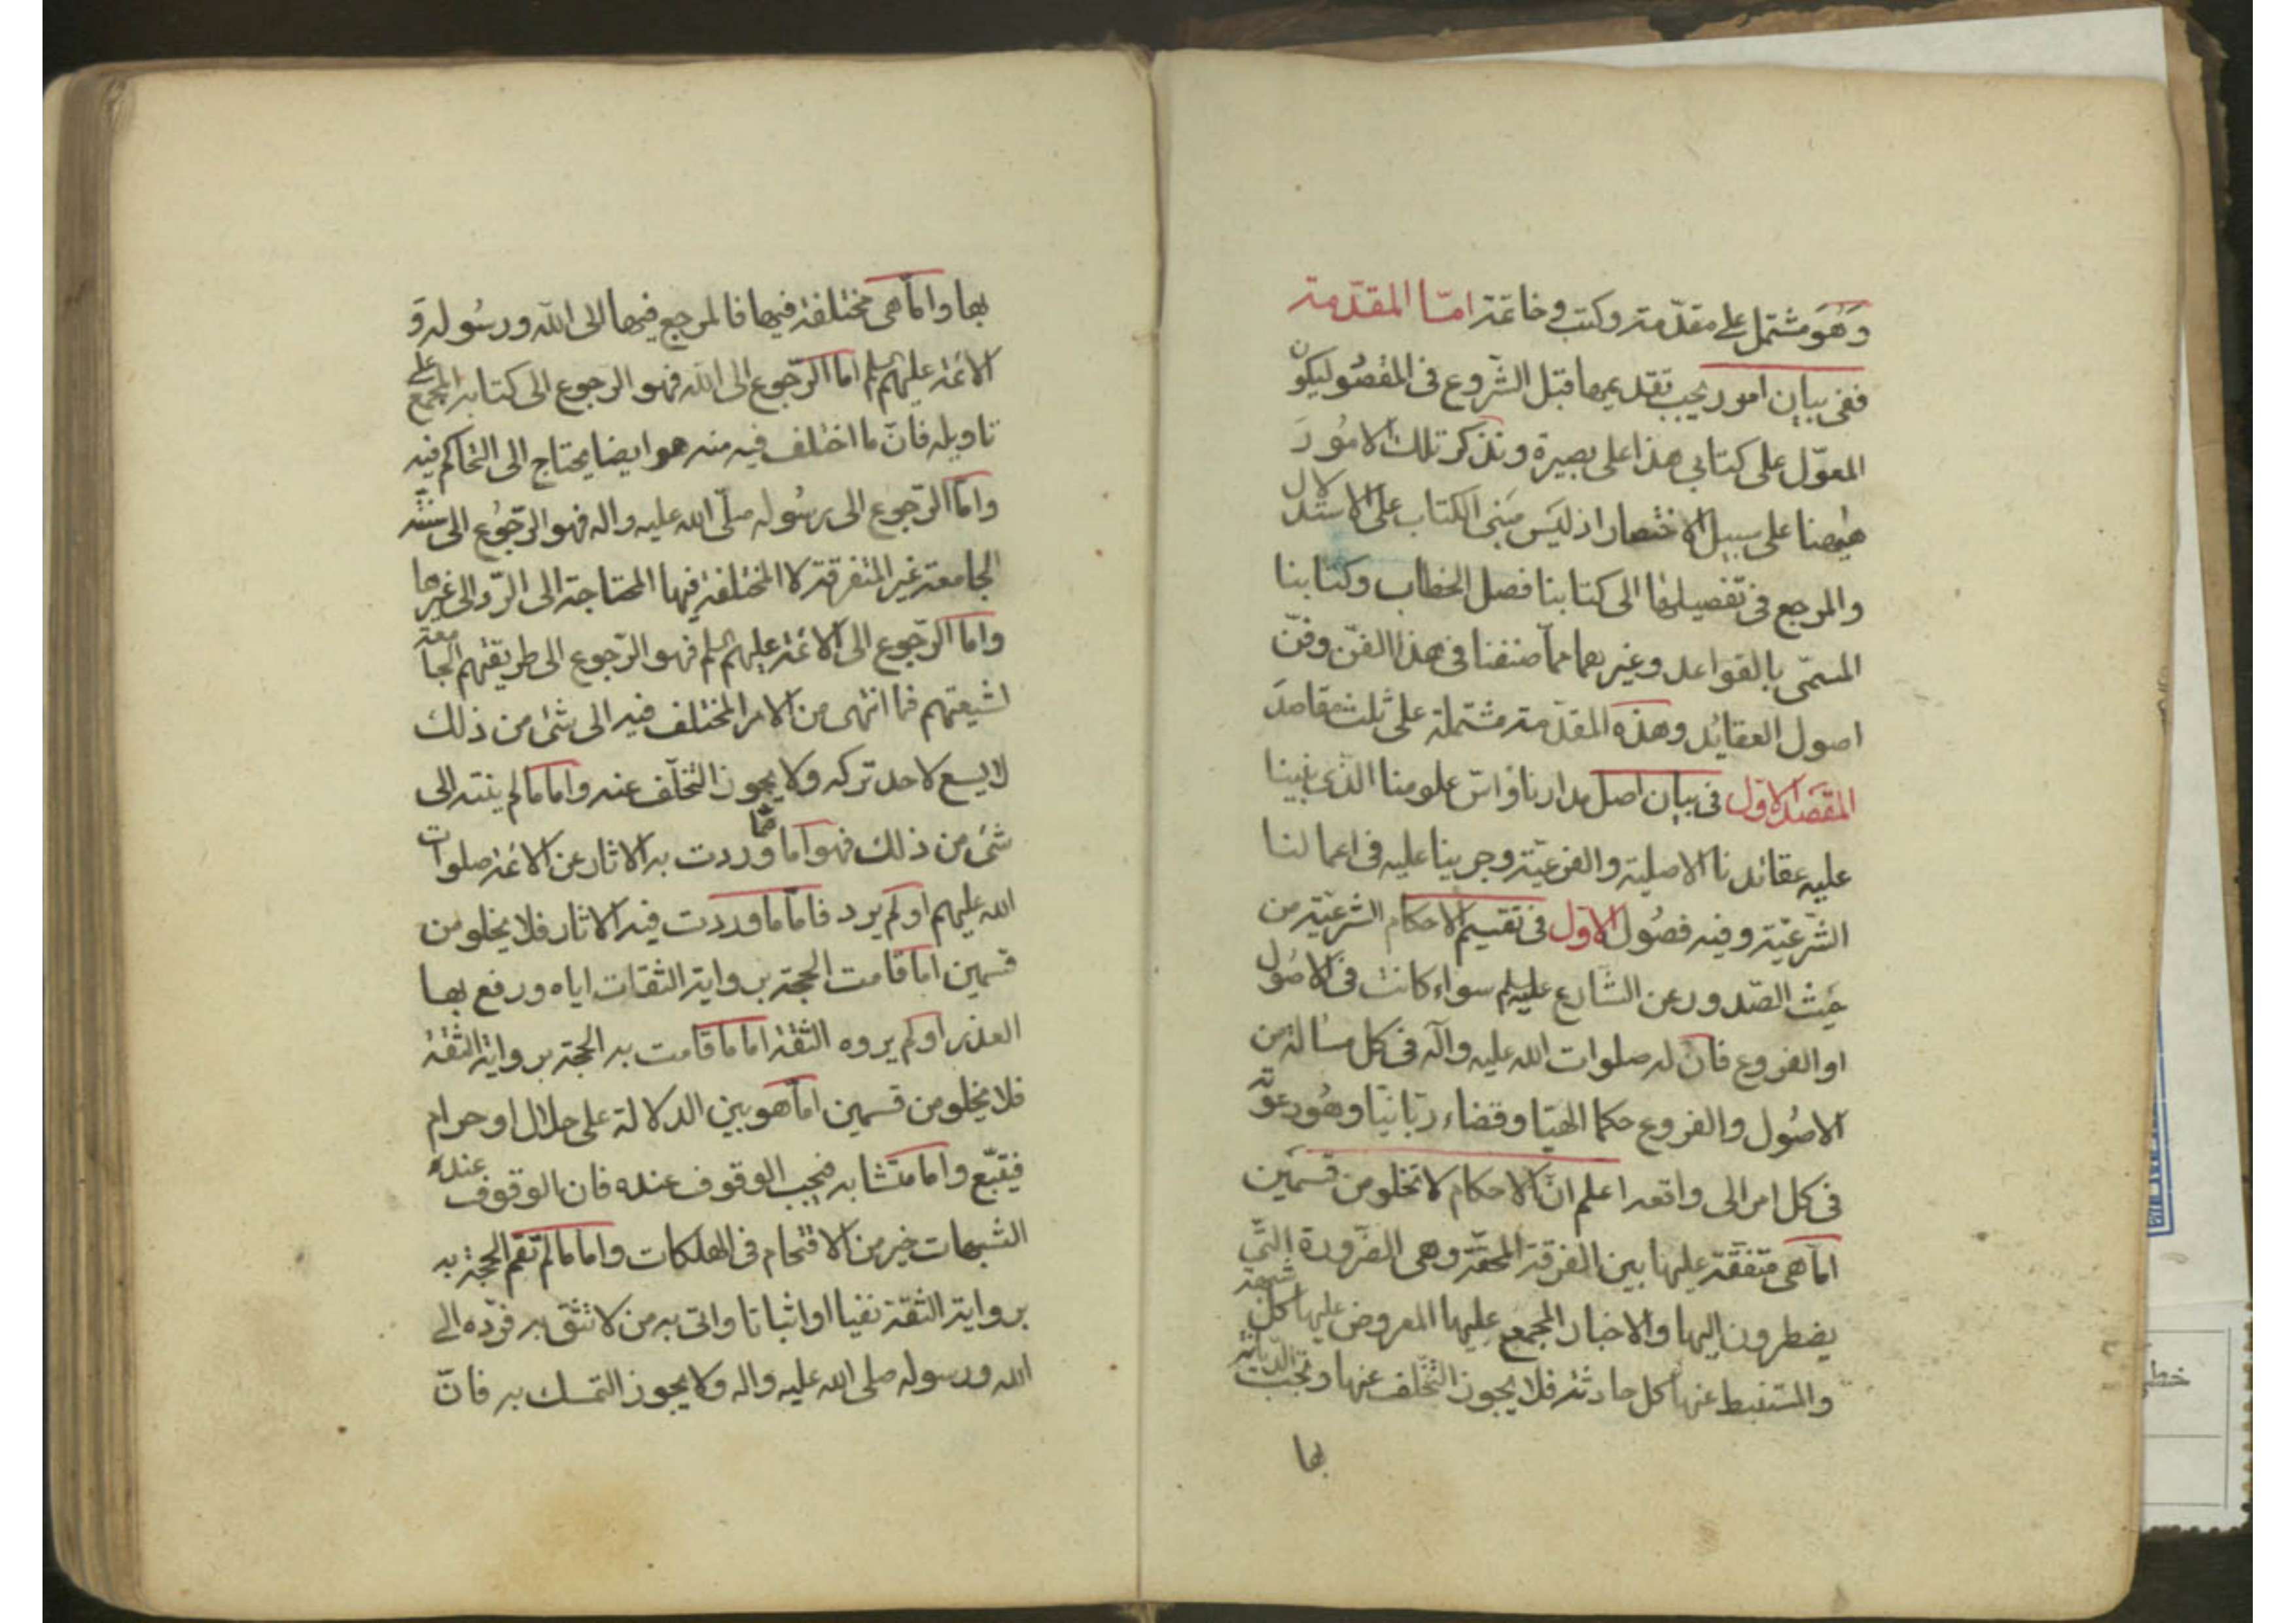 وهو مشتمل على مقدّمة وكتب وخاتمة امّا المقدّمة
ففى بيان امور يجب تقديمها قبل الشّروع فى المقصود ليكون
المعوّل على كتابى هذا على بصيرة ونذكر تلك الامور
هيهنا على سبيل الاختصار اذ ليس مبنى الكتاب على الاستدلال
والمرجع فى تفصيلها الى كتابنا فصل الخطاب وكتابنا
المسمّى بالقواعد وغيرهما ممّا صنفنا فى هذا الفنّ وفنّ
اصول العقائد وهذه المقدّمة مشتملة على ثلث مقاصد
المقصد الاوّل فى بيان اصل مدارنا واسّ علومنا الّذى بنينا
عليه عقائدنا الاصلية والفرعيّة وجرينا عليه فى اعمالنا
الشّرعيّة وفيه فصول الاوّل فى تقسيم الاحكام الشرعيّة من
حيث الصّدور عن الشّارع عليه السلم سواء كانت فى الاصول
او الفروع فانّ له صلوات الله عليه وآله فى كل مسألة من
الاصول والفروع حكما الهيّا وقضاء ربّانيّا وهو دعوته
فى كل امر الى واقعه اعلم انّ الاحكام لا تخلو من قسمين
امّا هى متفقة عليها بين الفرقة المحقّة وهى الضرورة الّتى
يضطرون اليها والاخبار المجمع عليها المعروض عليها كل شبهة
والمستنبط عنها كل حادثة فلا يجوز التّخلف عنها وتجب الديانة
بها
بها وامّا هى مختلفة فيها فالمرجع فيها الى الله ورسوله و
الائمة عليهم السلم امّا الرّجوع الى الله فهو الرجوع الى كتابه المجمع على
تاويله فانّ ما اختلف فيه منه هو ايضا يحتاج الى التحاكم فيه
وامّا الرّجوع الى رسوله صلّى الله عليه واله فهو الرّجوع الى سنّته
الجامعة غير المتفرقة لا المختلفة فيها المحتاجة الى الرّد الى غيرها
وامّا الرّجوع الى الائمة عليهم السلم فهو الرّجوع الى طريقتهم الجامعة
لشيعتهم فما انتهى من الامر المختلف فيه الى شئ من ذلك
لا يسع لاحد تركه ولا يجوز التّخلّف عنه وامّا ما لم ينته الى
شئ من ذلك فهو امّا ممّا وردت به الاثار عن الائمة صلوات
الله عليهم او لم يرد فامّا ما وردت فيه الاثار فلا يخلو من
قسمين امّا قامت الحجة برواية الثقات اياه ورفع بها
العذر او لم يروه الثقة اما ما قامت به الحجة برواية الثقة
فلا يخلو من قسمين امّا هو بيّن الدلالة على حلال او حرام
فيتّبع وامّا متشابه فيجب الوقوف عنده فان الوقوف عند
الشبهات خير من الاقتحام فى الهلكات وامّا ما لم تقم الحجة به
برواية الثقة نفيا او اثباتا واتى به من لا تثق به فردّه الى
الله ورسوله صلى الله عليه واله ولا يجوز التمسك به فانّ